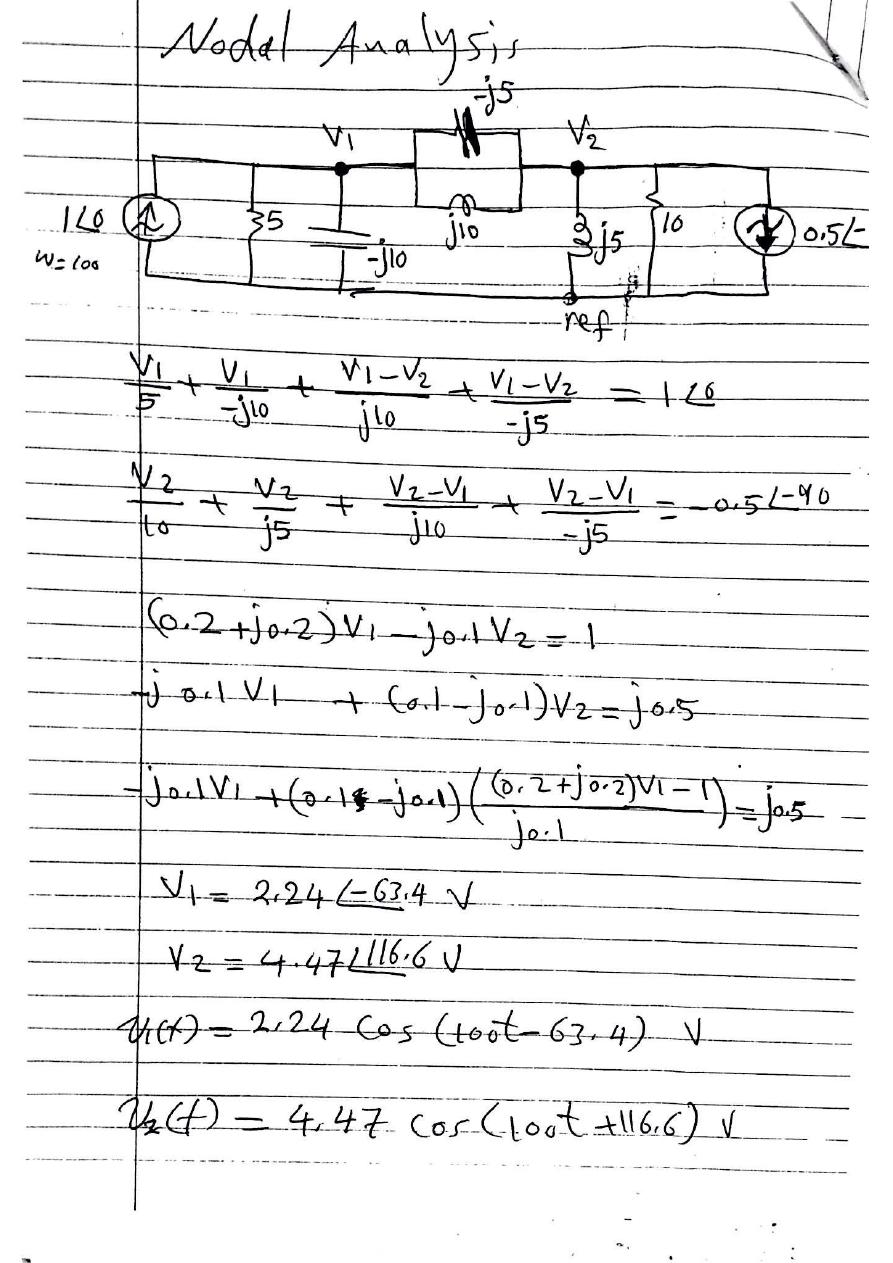 Nodal Analysis
-j5
V1 V2
1∠0 5 -j10 j10 j5 10 0.5∠-
W=100
ref
V1/5 + V1/-j10 + V1-V2/j10 + V1-V2/-j5 = 1∠0
V2/10 + V2/j5 + V2-V1/j10 + V2-V1/-j5 = -0.5∠-90
(0.2+j0.2)V1 - j0.1V2 = 1
-j0.1V1 + (0.1-j0.1)V2 = j0.5
-j0.1V1 + (0.1-j0.1)((0.2+j0.2)V1-1/j0.1) = j0.5
V1 = 2.24∠-63.4 V
V2 = 4.47∠116.6 V
v1(t) = 2.24 cos(100t-63.4) V
v2(t) = 4.47 cos(100t+116.6) V